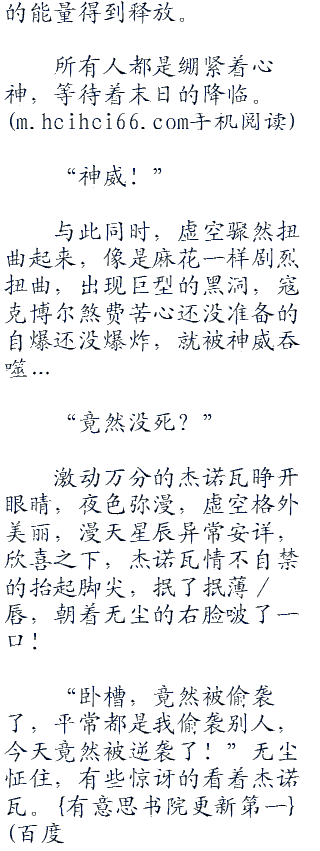 的能量得到释放。
所有人都是绷紧着心
神，等待着末日的降临。
(m.hcihci66.com手机阅读)
“神威！”
与此同时，虚空骤然扭
曲起来，像是麻花一样剧烈
扭曲，出现巨型的黑洞，寇
克博尔煞费苦心还没准备的
自爆还没爆炸，就被神威吞
噬…
“竟然没死？”
激动万分的杰诺瓦睁开
眼睛，夜色弥漫，虚空格外
美丽，漫天星辰异常安详，
欣喜之下，杰诺瓦情不自禁
的抬起脚尖，抿了抿薄／
唇，朝着无尘的右脸啵了一
口！
“卧槽，竟然被偷袭
了，平常都是我偷袭别人，
今天竟然被逆袭了！”无尘
怔住，有些惊讶的看着杰诺
瓦。{有意思书院更新第一}
(百度